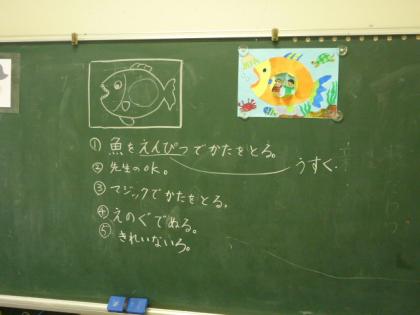 ① 魚をえんぴつでかたをとる。
うすく.
② 先生のOK。
③ マジックでかたをとる。
④ えのぐでぬる。
⑤ きれいないろ。